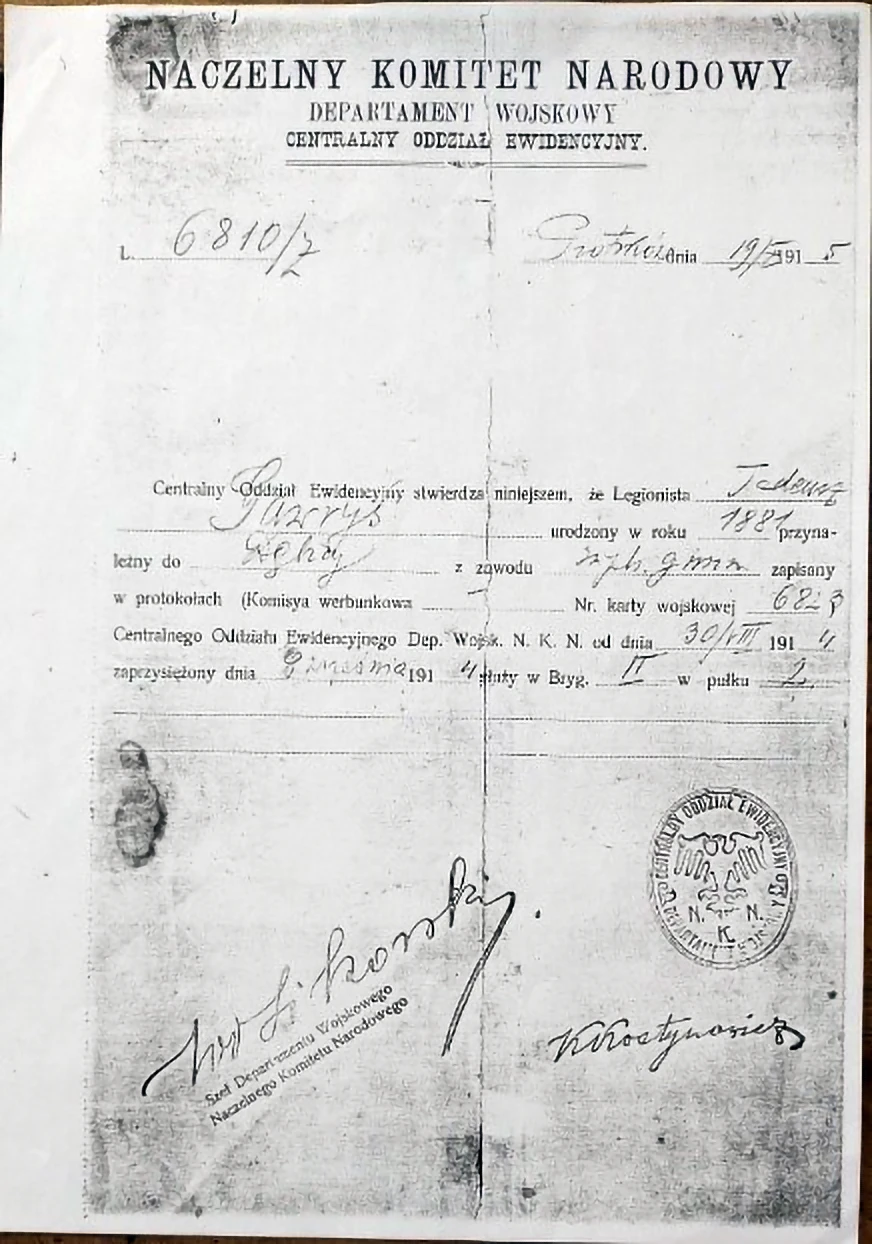 NACZELNY KOMITET NARODOWY
DEPARTAMENT WOJSKOWY
CENTRALNY ODDZIAŁ EWIDENCYJNY.
L. 6810/7 Piotrków dnia 19/5 191 5
Centralny Oddział Ewidencyjny stwierdza niniejszem, że Legionista Tadeusz
urodzony w roku 1881 przyna-
leżny do z zawodu zapisany
w protokołach (Komisya werbunkowa — Nr. karty wojskowej 6823
Centralnego Oddziału Ewidencyjnego Dep. Wojsk. N. K. N. od dnia 30/VIII 191 4
zaprzysiężony dnia września 191 4 służy w Bryg. II w pułku 2
CENTRALNY ODDZIAŁ EWIDENCYJNY
N. N.
K.
Szef Departamentu Wojskowego
Naczelnego Komitetu Narodowego